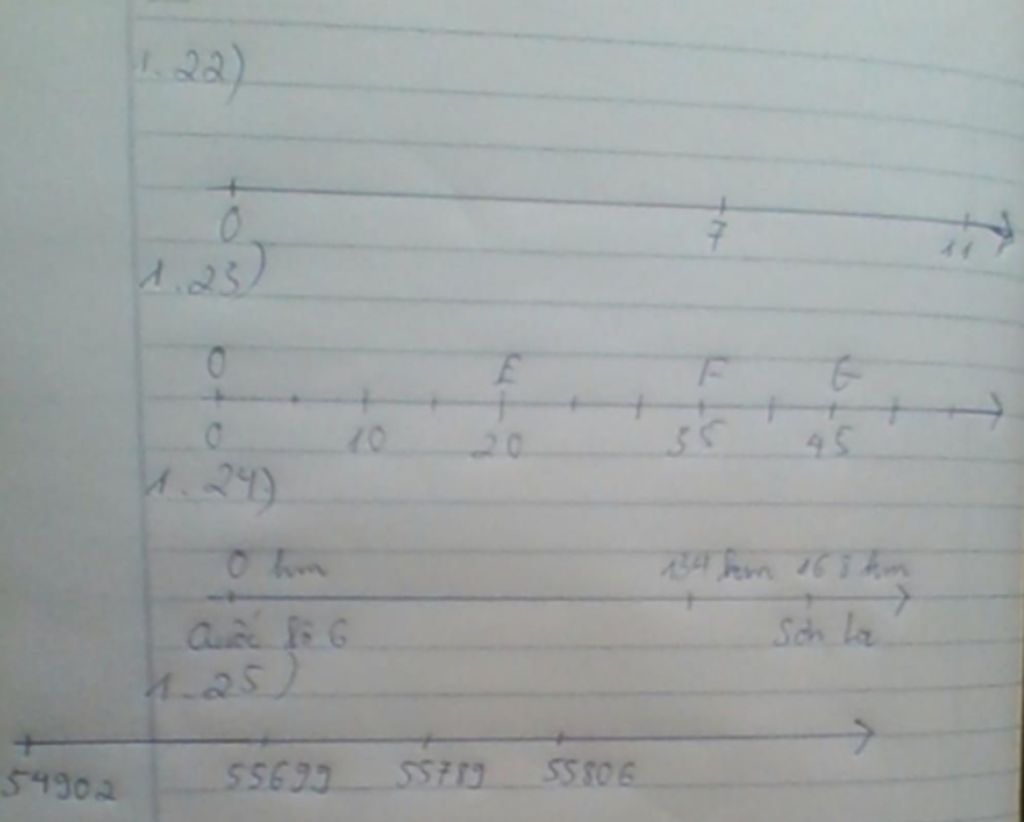 1.22)
0 7 11
1.23)
O E F G
0 10 20 35 45
1.24)
0 km 134 km 168 km
Quốc lộ 6 Sơn La
1.25)
54902 55699 55789 55806